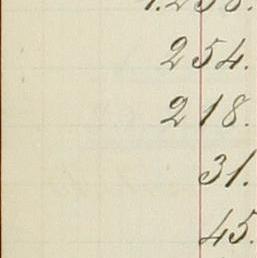 254.
218.
31.
45.